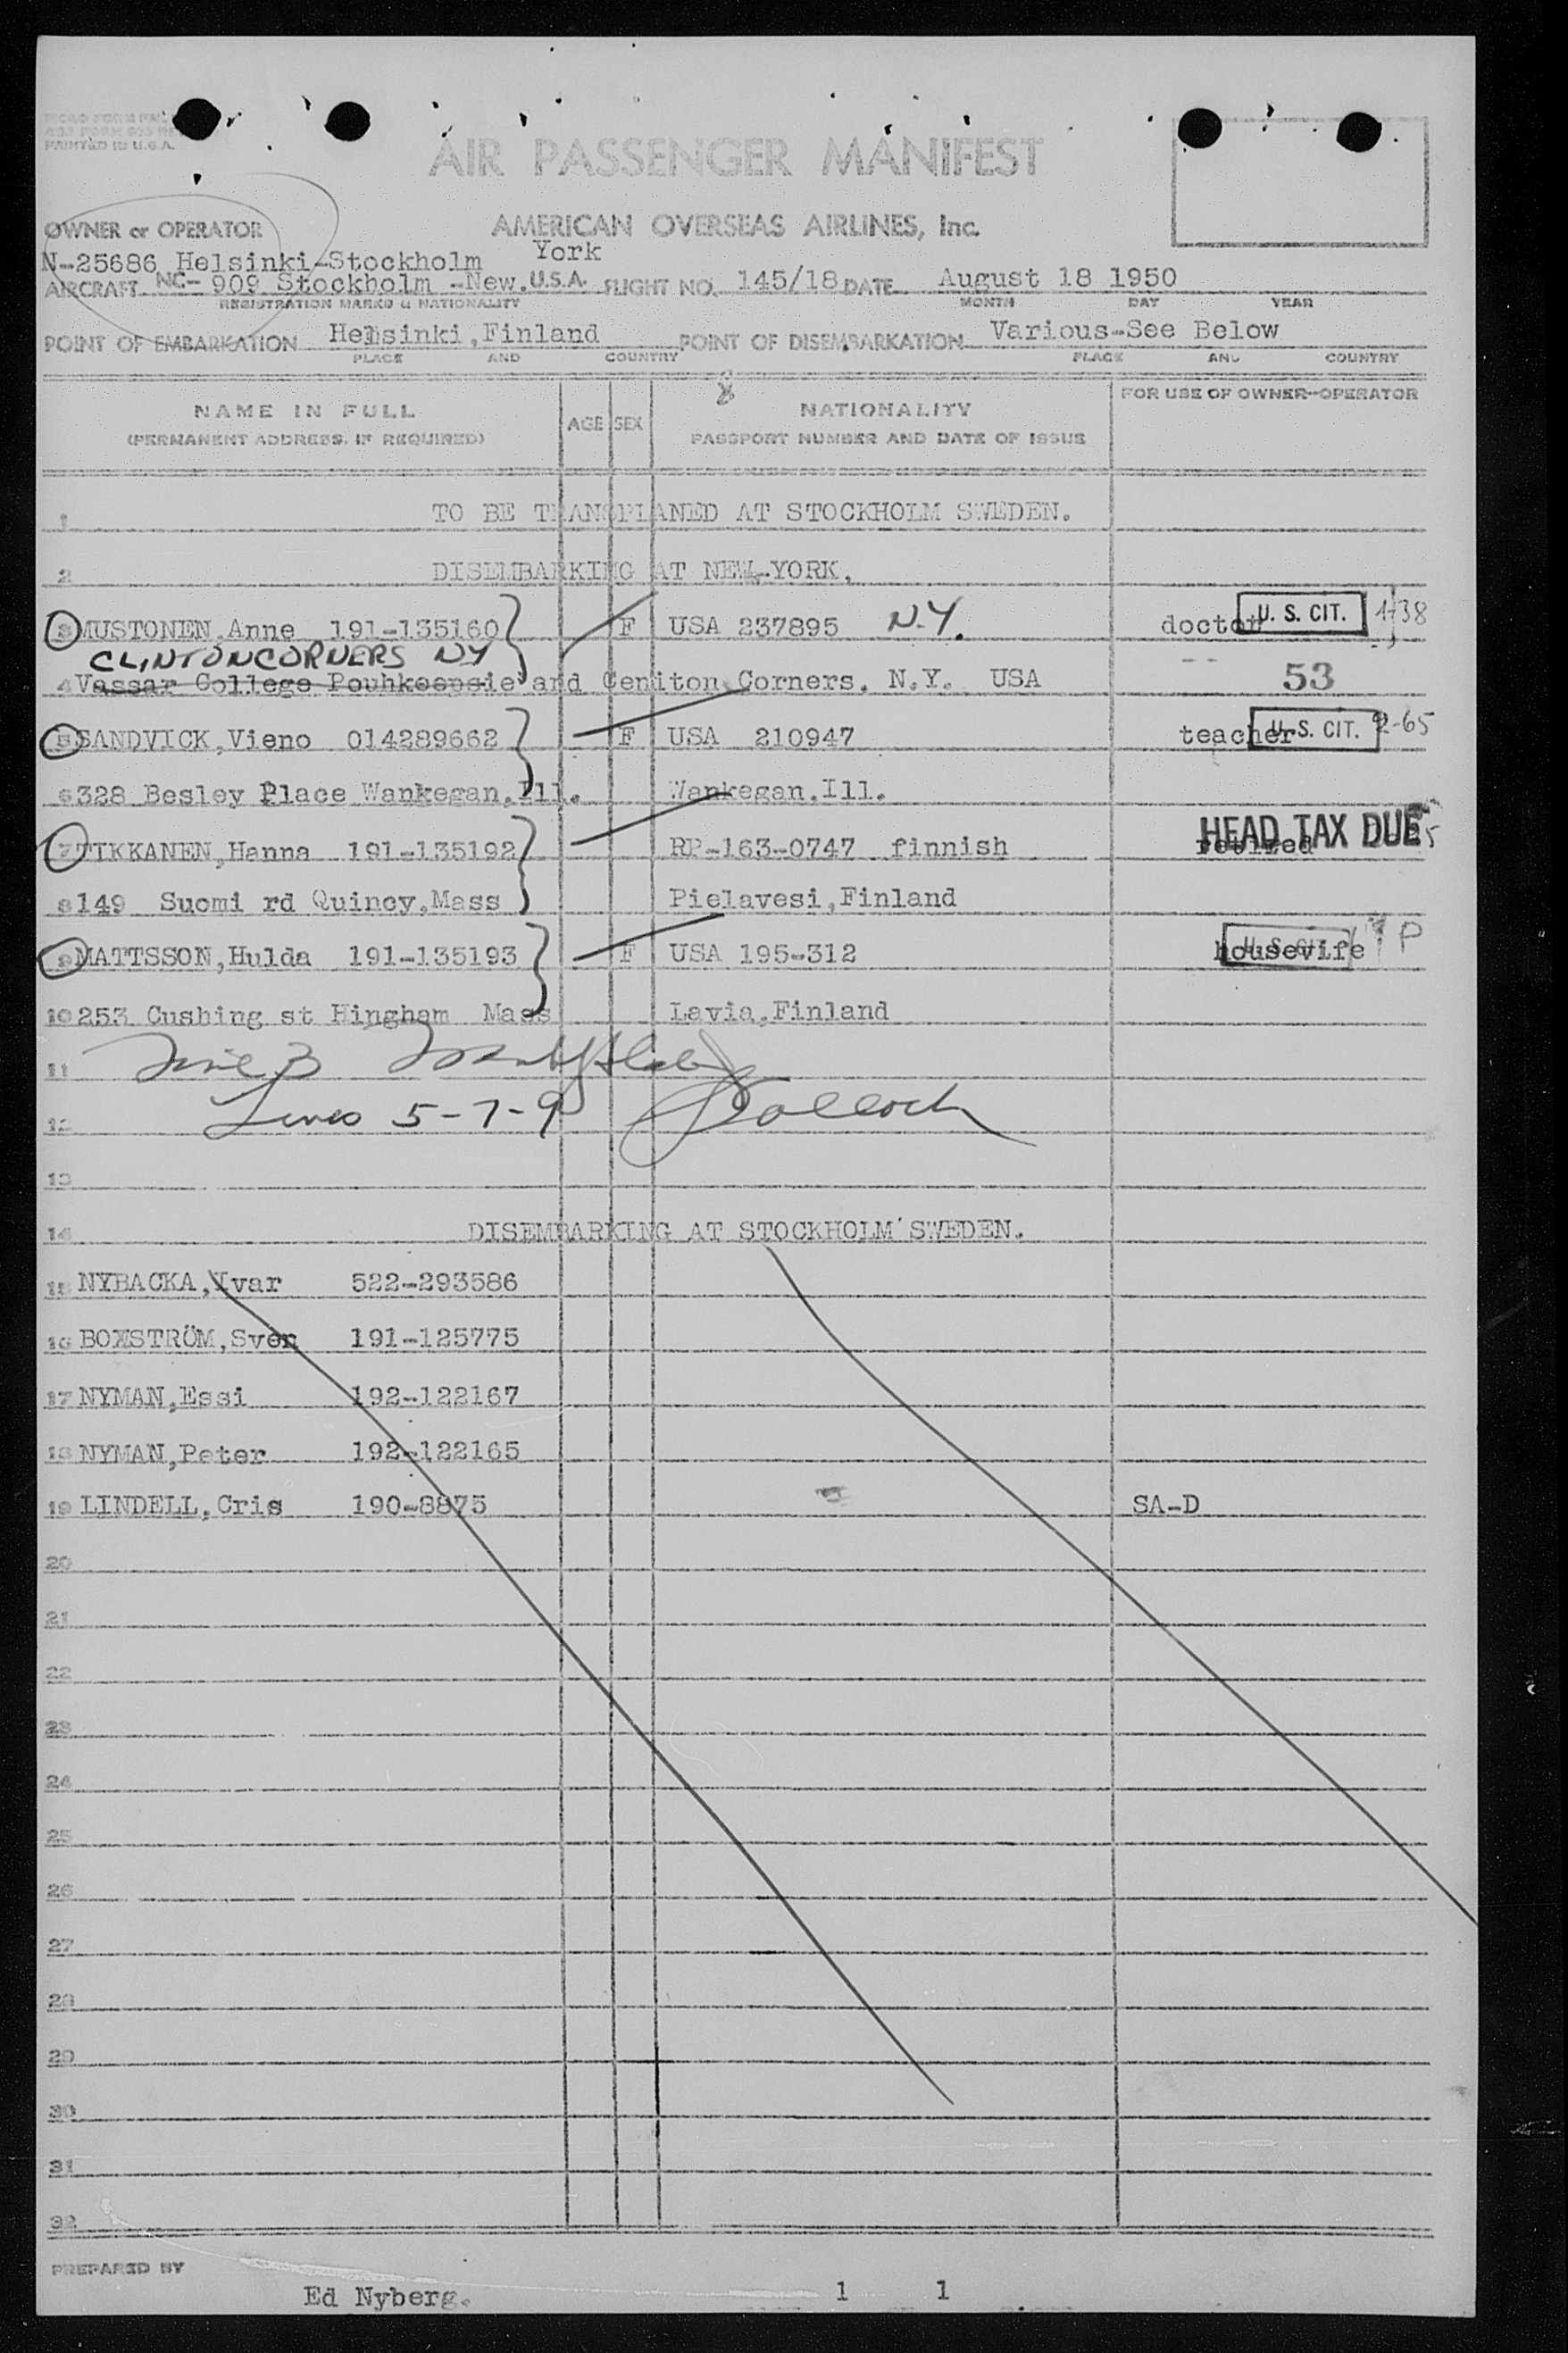 PRINTED IN U.S.A.
AIR PASSENGER MANIFEST
OWNER or OPERATOR AMERICAN OVERSEAS AIRLINES, Inc.
N-25686 Helsinki-Stockholm York
AIRCRAFT NC- 909 Stockholm -New. U.S.A. FLIGHT NO. 145/18 DATE August 18 1950
REGISTRATION MARKS & NATIONALITY MONTH DAY YEAR
POINT OF EMBARKATION Helsinki, Finland POINT OF DISEMBARKATION Various-See Below
PLACE AND COUNTRY PLACE AND COUNTRY
NAME IN FULL AGE SEX NATIONALITY FOR USE OF OWNER-OPERATOR
(PERMANENT ADDRESS, IF REQUIRED) PASSPORT NUMBER AND DATE OF ISSUE
1 TO BE TRANSPLANED AT STOCKHOLM SWEDEN.
2 DISEMBARKING AT NEW-YORK,
3 MUSTONEN, Anne 191-135160 F USA 237895 N.Y. doctor U. S. CIT.
CLINTON CORNERS NY
4 Vassar College Pouhkeepsie and Ceniton Corners, N.Y. USA 53
5 SANDVICK, Vieno 014289662 F USA 210947 teacher U. S. CIT. 2-65
6 328 Besley Place Wankegan, Ill. Wankegan, Ill.
7 TIKKANEN, Hanna 191-135192 RP-163-0747 finnish HEAD TAX DUE
8 149 Suomi rd Quincy, Mass Pielavesi, Finland
9 MATTSSON, Hulda 191-135193 F USA 195-312 housevife U. S. CIT. P
10 253 Cushing st Hingham Mass Lavia, Finland
11
12 Lines 5-7-9
13
14 DISEMBARKING AT STOCKHOLM SWEDEN.
15 NYBACKA, Ivar 522-293586
16 BOXSTRÖM, Sven 191-125775
17 NYMAN, Essi 192-122167
18 NYMAN, Peter 192-122165
19 LINDELL, Cris 190-8875 SA-D
20
21
22
23
24
25
26
27
28
29
30
31
32
PREPARED BY
Ed Nyberg. 1 1